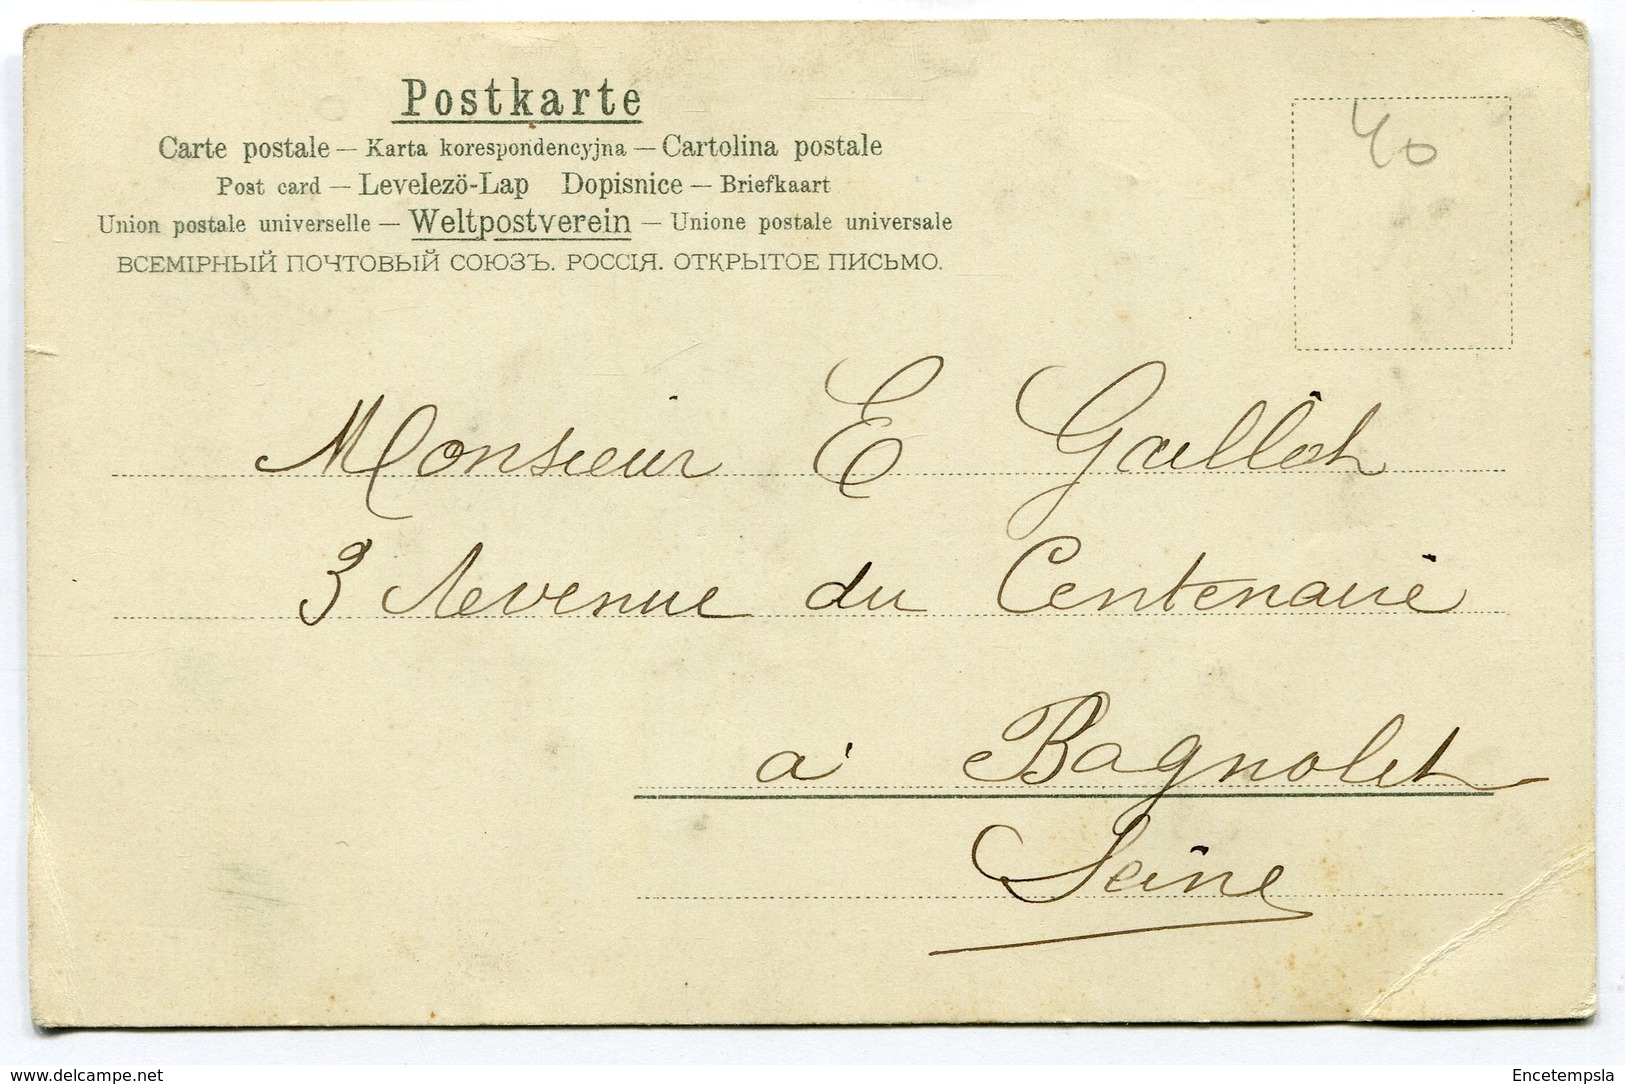 Postkarte
Carte postale — Karta korespondencyjna — Cartolina postale
Post card — Levelezö-Lap Dopisnice — Briefkaart
Union postale universelle — Weltpostverein — Unione postale universale
ВСЕМІРНЫЙ ПОЧТОВЫЙ СОЮЗЪ. РОССІЯ. ОТКРЫТОЕ ПИСЬМО.
40
Monsieur E Gaillot
3 Avenue du Centenaire
à Bagnolet
Seine
delcampe.net
Encetempsla